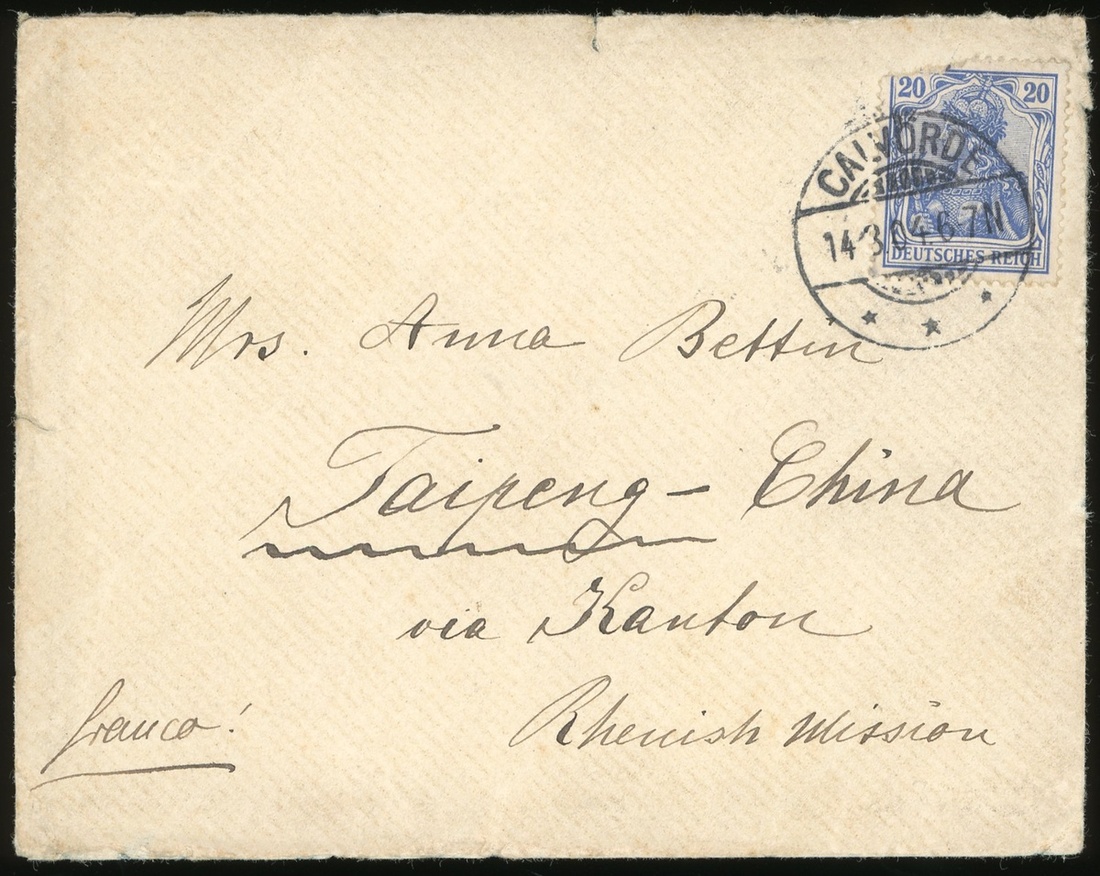 20 20
DEUTSCHES REICH
CALVÖRDE
14.3.04.6-7N
Mrs. Anna Bettin
Taipeng - China
via Kanton
franco!
Rhenish Mission